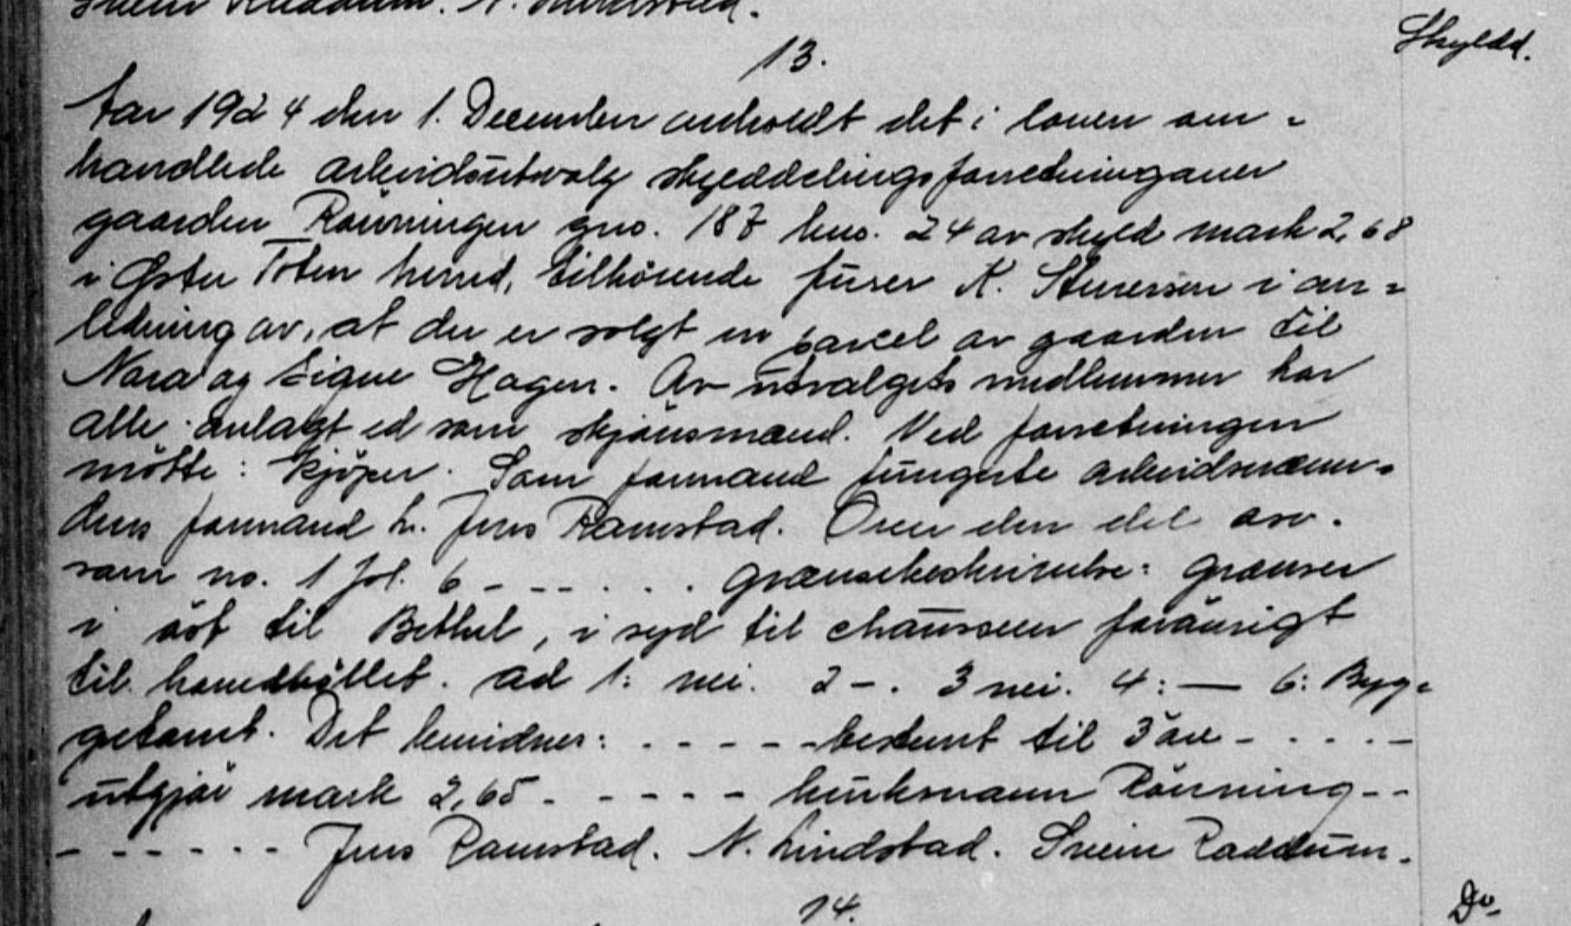 Svein Raddum. N. Lindstad.
13.
Skyldd.
Aar 1924 den 1. December avholdt det i loven om-
handlede arbeidsutvalg skylddelingsforretning over
gaarden Rønningen gno. 187 bno. 24 av skyld mark 2,68
i Østre Toten herred, tilhørende furer K. Stenersen i an-
ledning av, at der er solgt en parcel av gaarden til
Nora og Signe Hagen. Av utvalgets medlemmer har
alle avlagt ed som skjønsmænd. Ved forretningen
møtte: kjøper. Som formand fungerte arbeidsnævn-
dens formand h. Jens Ramstad. Over den del osv.
som no. 1 fol. 6 - - - . . . Grænsebeskrivelse: Grænser
i øst til Bethel, i syd til chausseen forøvrigt
til hovedbøllet. ad 1: nei. 2 -. 3 nei. 4: — 6: Byg-
getomt. Det bevidnes: . - - - - bestemt til 3 øre - . . . -
utgjør mark 2,65 - - - - - bruksnavn Rønning - -
- - - - - - Jens Ramstad. N. Lindstad. Svein Raddum.
14.
Do-